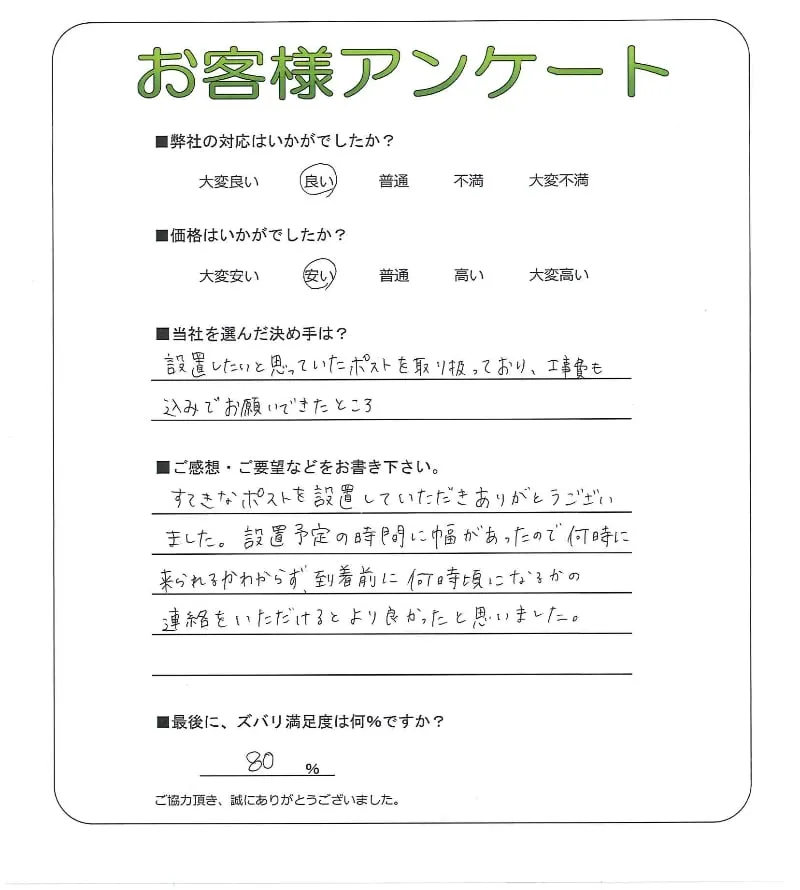 お客様アンケート
■弊社の対応はいかがでしたか？
大変良い 良い 普通 不満 大変不満
■価格はいかがでしたか？
大変安い 安い 普通 高い 大変高い
■当社を選んだ決め手は？
設置したいと思っていたポストを取り扱っており、工事費も
込みでお願いできたところ
■ご感想・ご要望などをお書き下さい。
すてきなポストを設置していただきありがとうござい
ました。設置予定の時間に幅があったので何時に
来られるかわからず、到着前に何時頃になるかの
連絡をいただけるとより良かったと思いました。
■最後に、ズバリ満足度は何%ですか？
80 %
ご協力頂き、誠にありがとうございました。